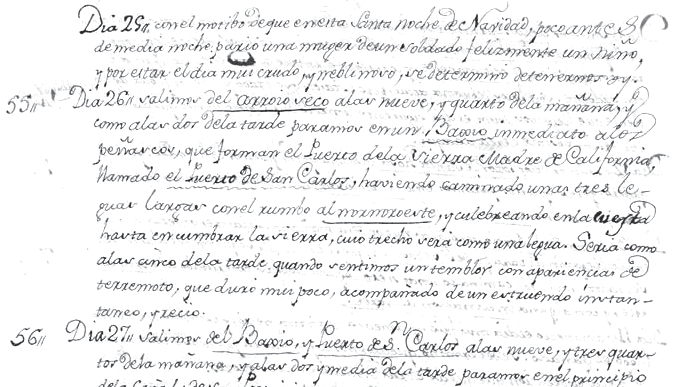 Dia 25,, con el motibo de que en esta Santa noche de Navidad, poco antes
de media noche, pario una muger de un soldado felizmente un niño,
y por estar el dia mui crudo, y neblinoso, se determinò detenernos oy.
55,, Dia 26,, salimos del arroio seco a las nueve, y quarto de la mañana, y
como a las dos de la tarde paramos en un Baxio inmediato a los
peñascos, que forman el Puerto de la Sierra Madre de California,
llamado el Puerto de San Càrlos, haviendo caminado unas tres le-
guas largas con el rumbo al nornoroeste, y culebreando en la cuesta
hasta encumbrar la sierra, cuio trecho serà como una legua. Serìa como
a las cinco de la tarde, quando sentimos un temblor con apariencias de
terremoto, que durò mui poco, acompañado de un estruendo instan-
taneo, y recio.
56,, Dia 27,, salimos del Baxio, y Puerto de Sn. Carlos a las nueve, y tres quar-
tos de la mañana, y a las dos y media de la tarde paramos en el principio
de la